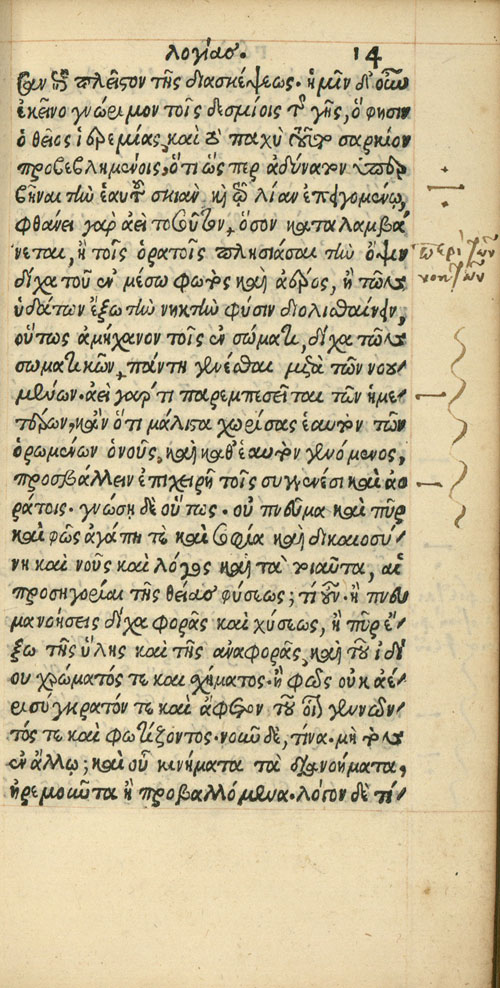 λογίας. 14
τὸ πλεῖστον τῆς διασκέψεως. ἡμῖν δ' οὖν
ἐκεῖνο γνώριμον τοῖς δεσμίοις τῆς γῆς, ὅ φησιν
ὁ θεῖος ἱερεμίας, καὶ τὸ παχὺ τοῦτο σαρκίον
προβεβλημένοις, ὅτι ὥς περ ἀδύνατον ὑπερ
βῆναι τὴν ἑαυτοῦ σκιὰν, κὴ τῷ λίαν ἐπειγομένῳ,
φθάνει γὰρ ἀεὶ τοσοῦτον, ὅσον καταλαμβά
νεται, ἢ τοῖς ὁρατοῖς πλησιάσαι τὴν ὄψιν
δίχα τοῦ ἐν μέσω φωτὸς καὶ ἀέρος, ἢ τῶν
ὑδάτων ἔξω τὴν νηκτὴν φύσιν διολισθαίνειν,
οὕτως ἀμήχανον τοῖς ἐν σώματι, δίχα τῶν
σωματικῶν, πάντη γενέσθαι μετὰ τῶν νοου
μένων. ἀεὶ γάρ τι παρεμπεσεῖται τῶν ἡμε
τέρων, κἂν ὅτι μάλιστα χωρίσας ἑαυτὸν τῶν
ὁρωμένων ὁ νοῦς, καὶ καθ' ἑαυτὸν γενόμενος,
προσβάλλειν ἐπιχειρῆ τοῖς συγγενέσι καὶ ἀο
ράτοις. γνώση δὲ οὕτως. οὐ πνεῦμα καὶ πῦρ
καὶ φῶς ἀγάπη τε καὶ σοφία καὶ δικαιοσύ
νη καὶ νοῦς καὶ λόγος καὶ τὰ τοιαῦτα, αἱ
προσηγορίαι τῆς θείας φύσεως; τί οὖν. ἢ πνεῦ
μα νοήσεις δίχα φορᾶς καὶ χύσεως, ἢ πῦρ ἔ
ξω τῆς ὕλης καὶ τῆς ἄνω φορᾶς, καὶ τοῦ ἰδί
ου χρώματός τε καὶ σχήματος. ἢ φῶς οὐκ ἀέ
ρι σύγκρατόν τε καὶ ἄφετον τοῦ οἷον γεννῶν
τός τε καὶ φωτίζοντος. νοῦν δὲ, τίνα. μὴ τὸν
ἐν ἄλλῳ; καὶ οὗ κινήματα τὰ διανοήματα,
ἠρεμοῦντα ἢ προβαλλόμενα. λόγον δὲ τί
περὶ τῶν
νοητῶν